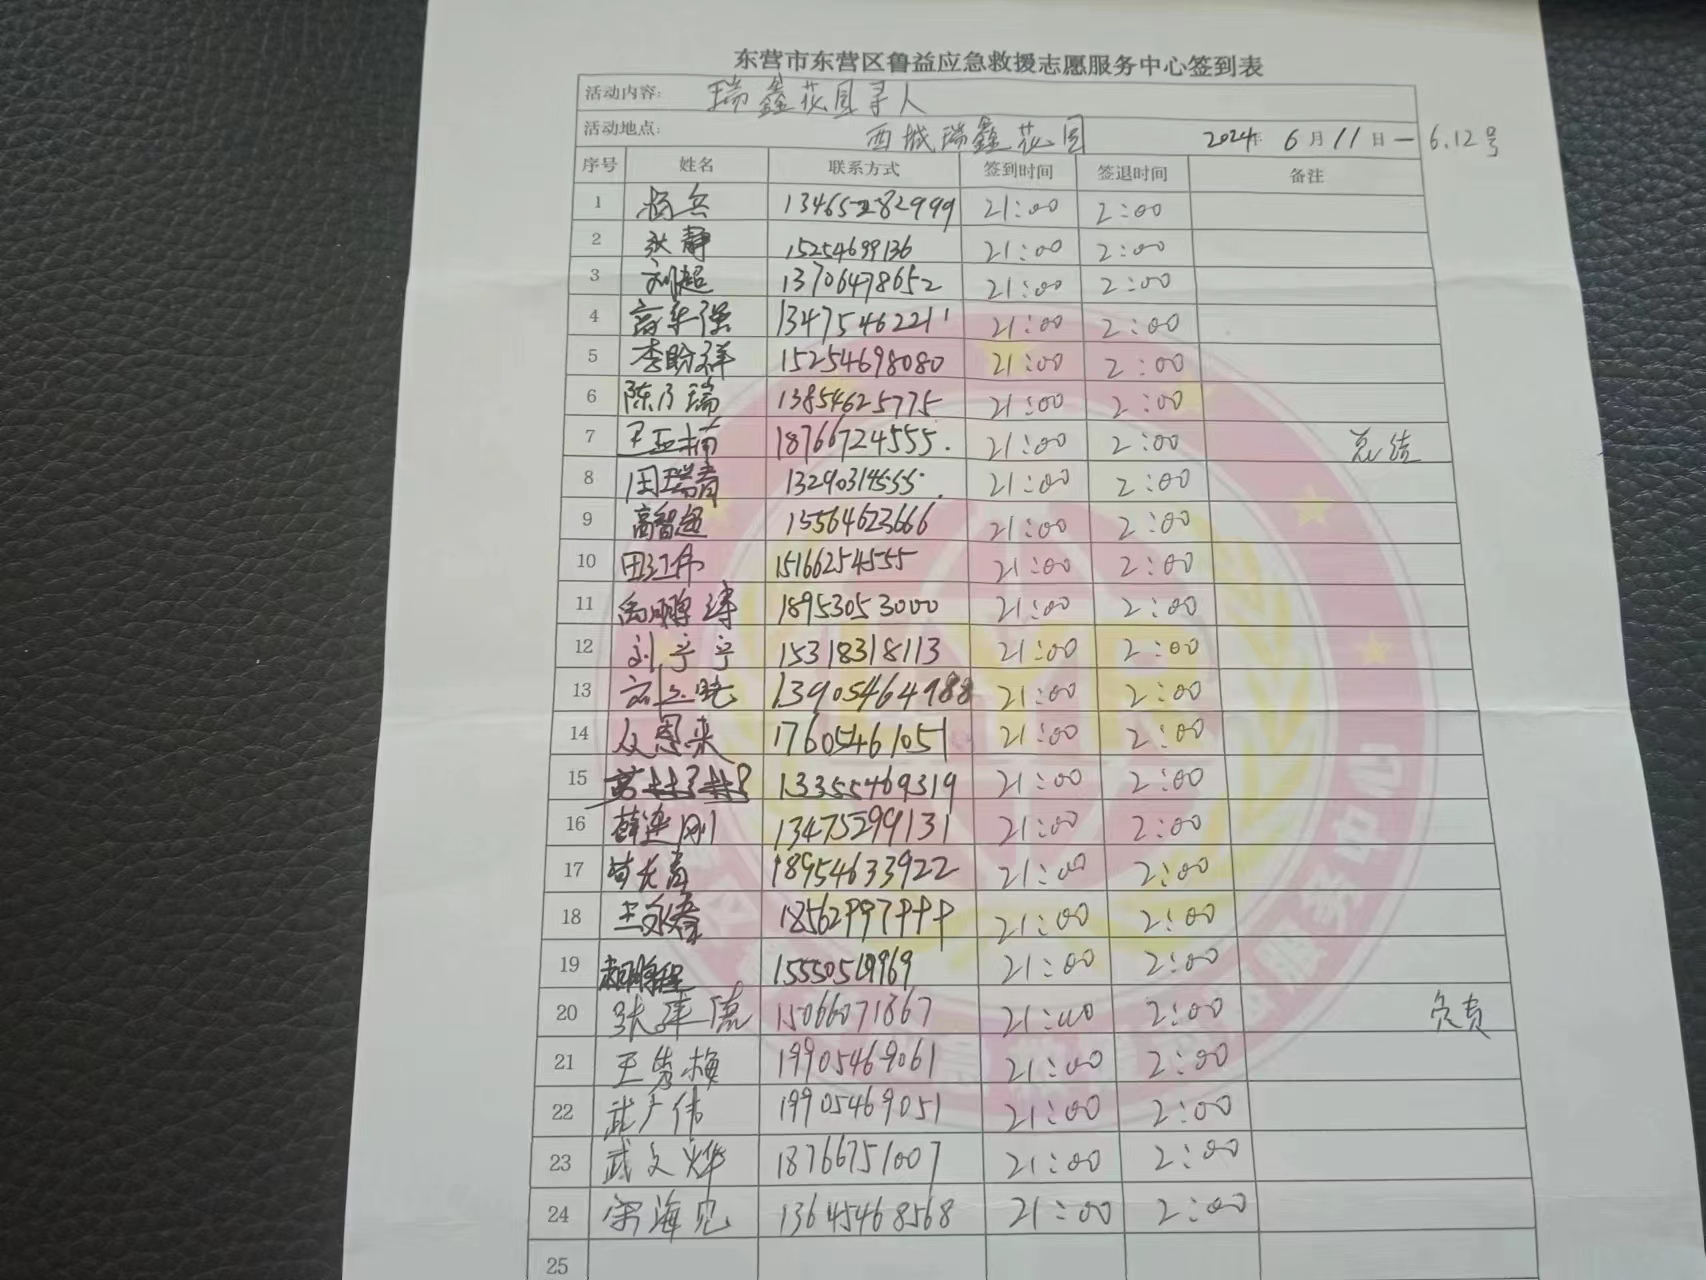 东营市东营区鲁益应急救援志愿服务中心签到表
活动内容: 瑞鑫花园寻人
活动地点: 西城瑞鑫花园 2024年 6月11日—6.12号
序号 姓名 联系方式 签到时间 签退时间 备注
1 杨兵 13465282999 21:00 2:00
2 张静 15254699136 21:00 2:00
3 刘超 13706478652 21:00 2:00
4 高华强 13475462211 21:00 2:00
5 李盼祥 15254698080 21:00 2:00
6 陈乃瑞 13854625775 21:00 2:00
7 王亚楠 18766724555. 21:00 2:00 总结
8 周瑞青 13290314555. 21:00 2:00
9 高智超 15564623666 21:00 2:00
10 田江伟 15166254555 21:00 2:00
11 鹏涛 18953053000 21:00 2:00
12 刘宁宁 15318318113 21:00 2:00
13 13905464988 21:00 2:00
14 恩来 17605461051 21:00 2:00
15 13355469319 21:00 2:00
16 薛连刚 13475299131 21:00 2:00
17 18954633922 21:00 2:00
18 王永春 18562997999 21:00 2:00
19 赵鹏程 15550519969 21:00 2:00
20 张建德 15066071867 21:00 2:00 负责
21 王秀梅 19905469061 21:00 2:00
22 武广伟 19905469051 21:00 2:00
23 武文烨 18766751007 21:00 2:00
24 宋海 13645468568 21:00 2:00
25
服务中心